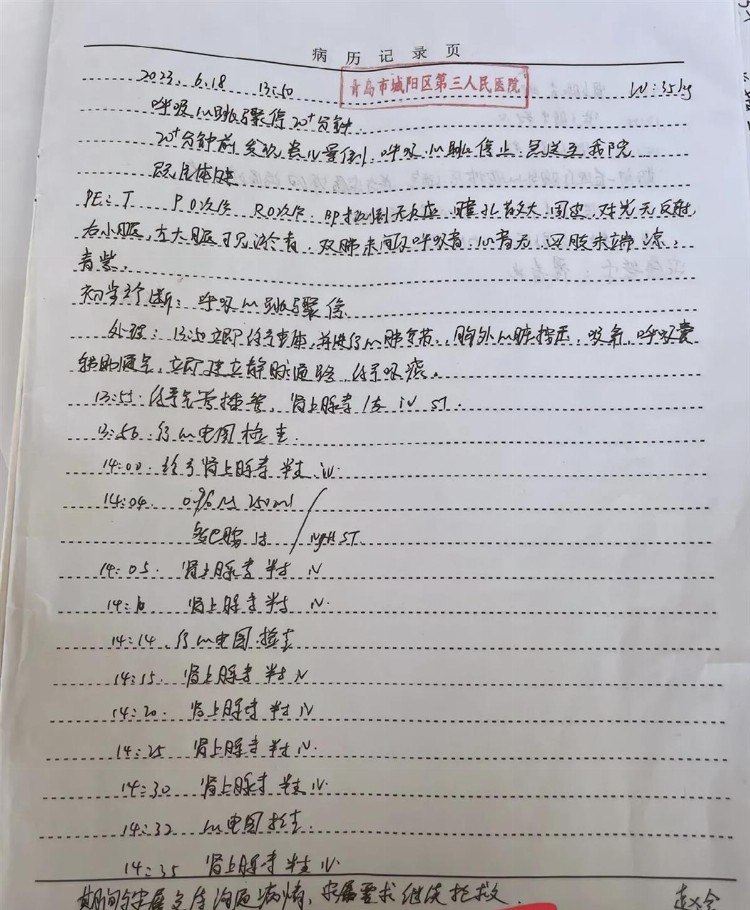 病历记录页
2023.6.18 13:50 青岛市城阳区第三人民医院 W:35kg
呼吸心跳骤停20⁺分钟.
20⁺分钟前发现患儿晕倒,呼吸心跳停止,急送至我院
既往体健
PE:T P0次/分 R0次/分 BP测不到 无反应,瞳孔散大固定,对光无反射,
右小腿,左大腿可见淤青,双肺未闻及呼吸音,心音无,四肢末端凉,
青紫.
初步诊断:呼吸心跳骤停
处理:13:50立即 并进行心肺复苏,胸外心脏按压,吸氧,呼吸囊
辅助通气,立即建立静脉通路,给予吸痰.
13:51.给予气管插管,肾上腺素1支 iv ST.
13:56.行心电图检查.
14:00.给予肾上腺素半支 iv.
14:04. 0.9% NS 250ml
多巴胺 ivgtt ST.
14:05. 肾上腺素半支 iv
14:10 肾上腺素半支 iv.
14:14.行心电图检查
14:15. 肾上腺素半支 iv
14:20. 肾上腺素半支 iv
14:25 肾上腺素半支 iv.
14:30 肾上腺素半支 iv.
14:32 心电图检查.
14:35 肾上腺素半支 iv.
期间与家属交待沟通病情,家属要求继续抢救.